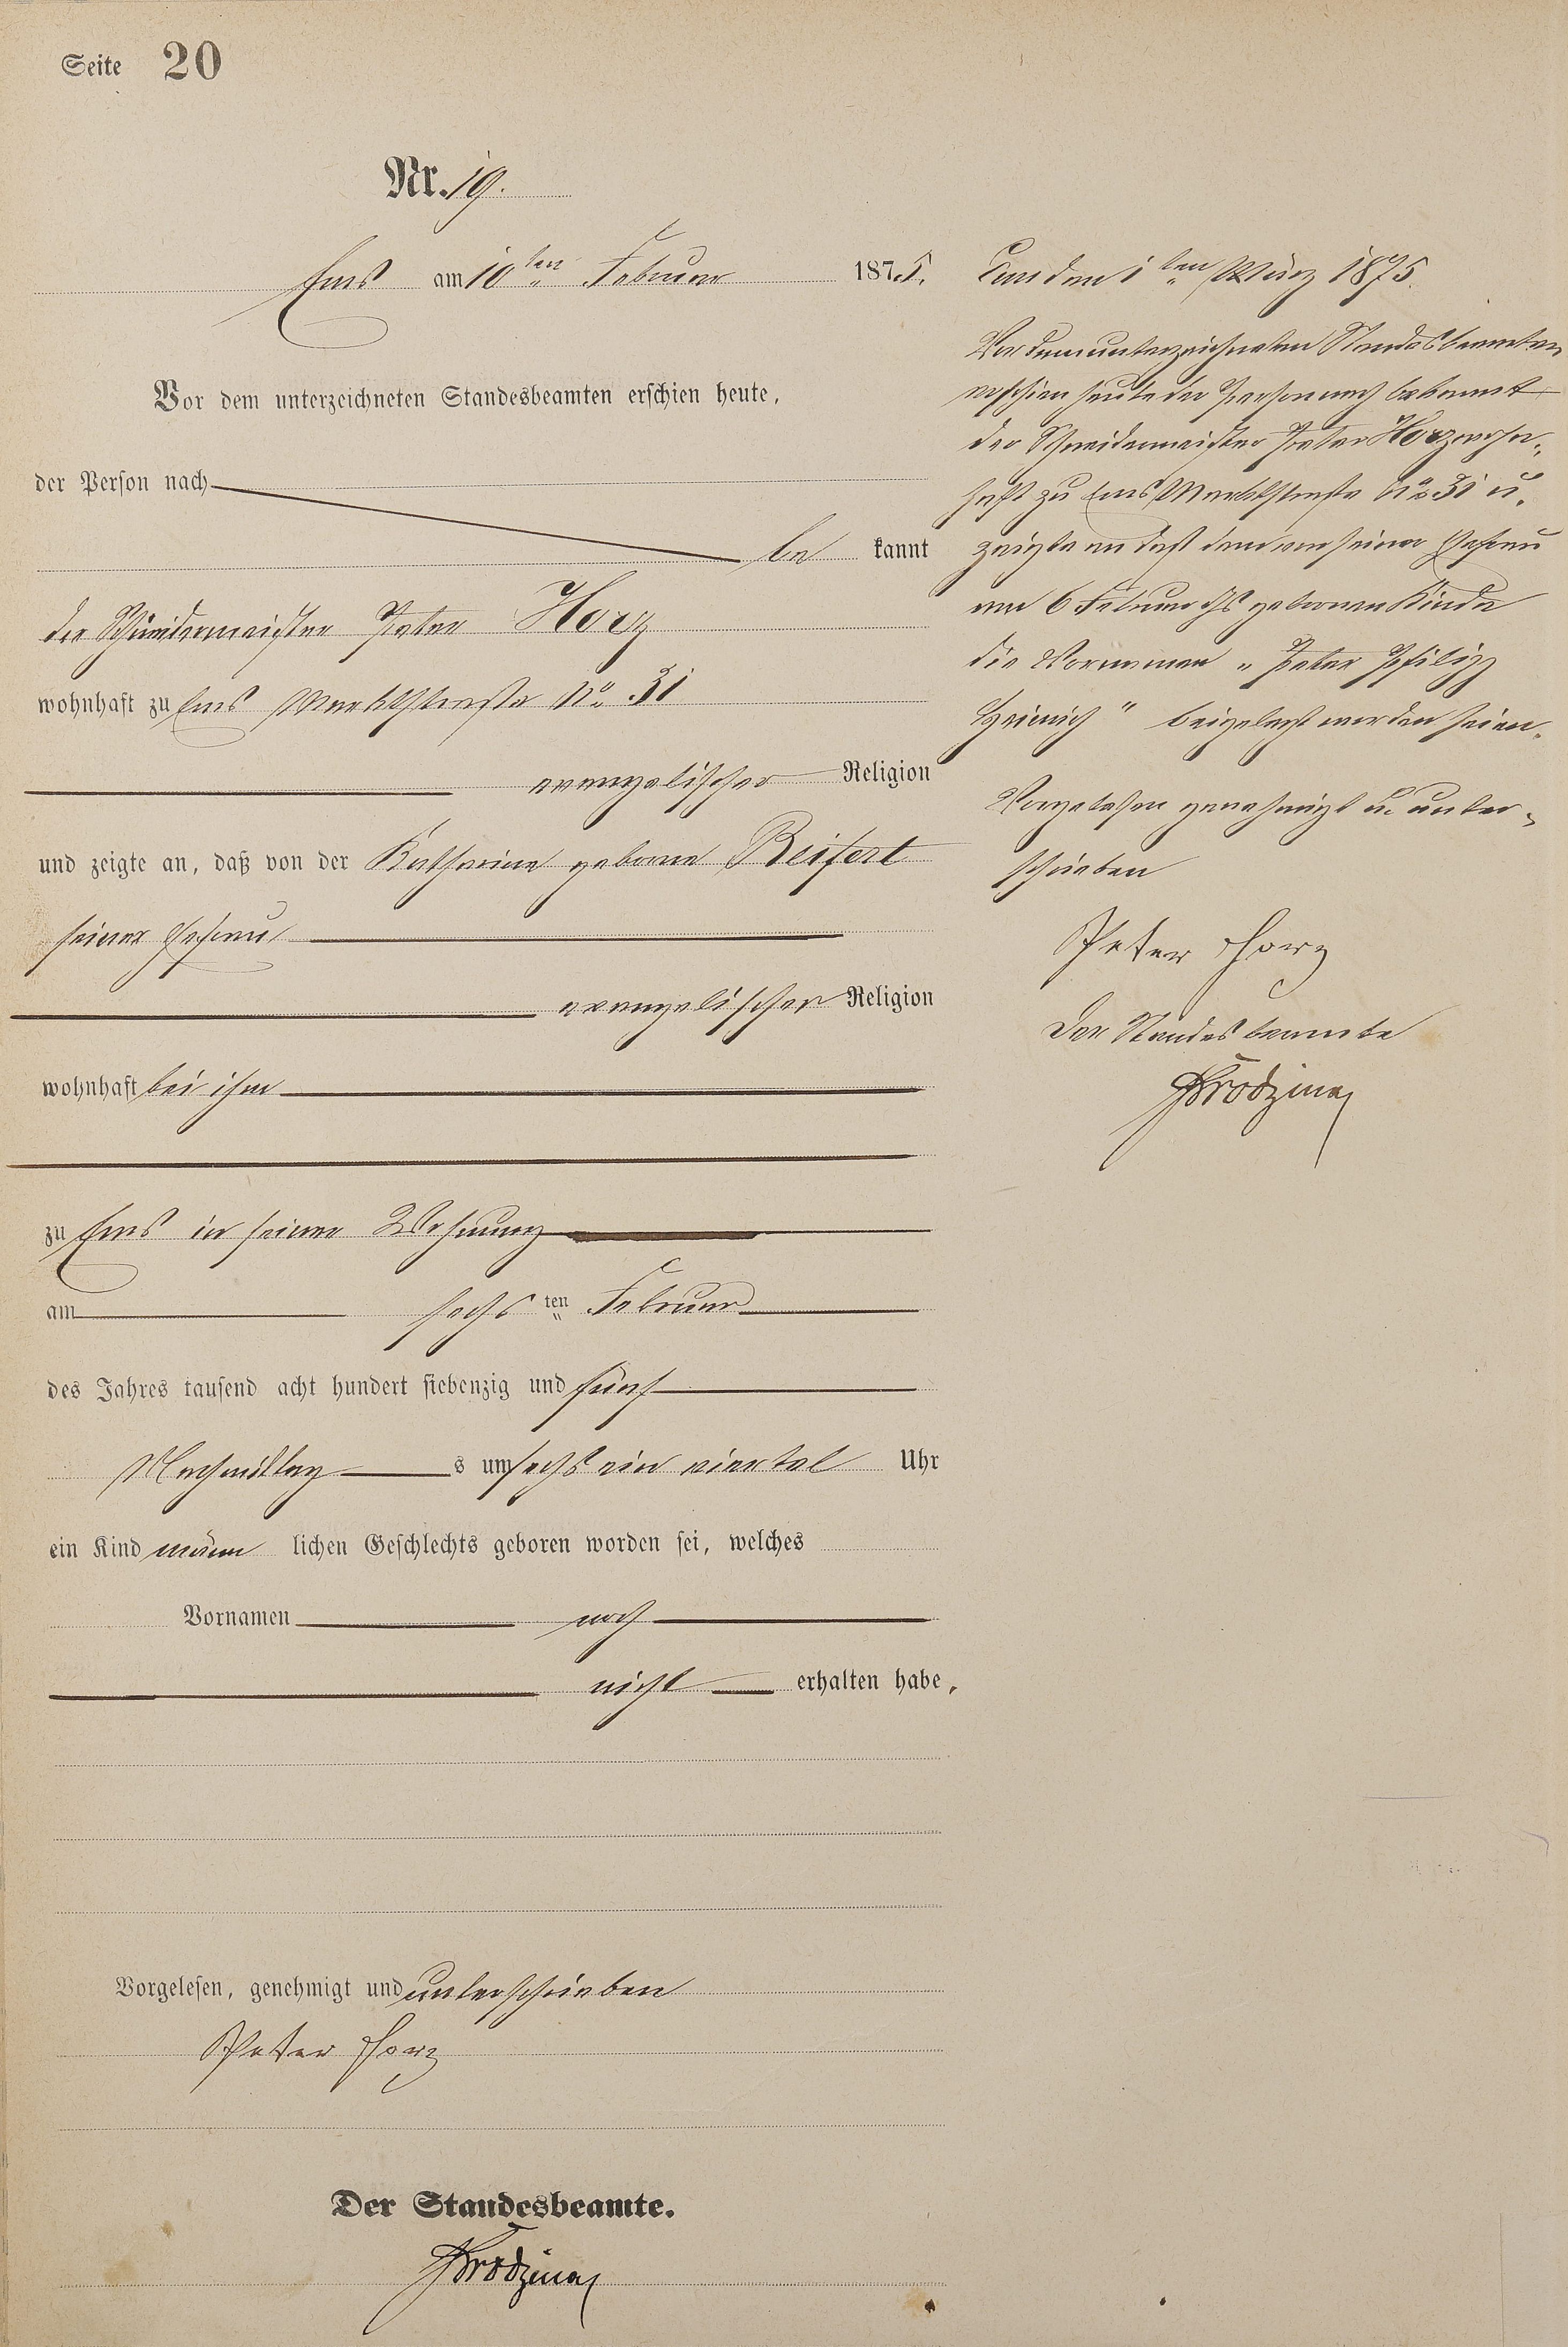 Seite 20
Nr. 19.
Ems am 10ten Februar 1875.
Vor dem unterzeichneten Standesbeamten erschien heute,
der Person nach
be kannt
der Schneidermeister Peter Horz
wohnhaft zu Ems Marktstraße No 31
evangelischer Religion
und zeigte an, daß von der Katharina geborne Beifert
seiner Ehefrau
evangelischer Religion
wohnhaft bei ihm
zu Ems in seiner Wohnung
am sechs ten Februar
des Jahres tausend acht hundert siebenzig und fünf
Nachmittag s um sechs ein viertel Uhr
ein Kind männ lichen Geschlechts geboren worden sei, welches
Vornamen noch
nicht erhalten habe.
Vorgelesen, genehmigt und unterschrieben
Peter Horz
Der Standesbeamte.
Ems den 1ten März 1875.
Vor dem unterzeichneten Standesbeamten
erschien heute der Person nach bekannt
der Schneidermeister Peter Horz wohn-
haft zu Ems Marktstraße No 31 u.
zeigte an daß dem von seiner Ehefrau
am 6 Februar ds geborenen Kinde
die Vornamen „ Peter Philipp
Heinrich " beigelegt worden seien.
Vorgelesen genehmigt u. unter-
schrieben
Peter Horz
Der Standesbeamte